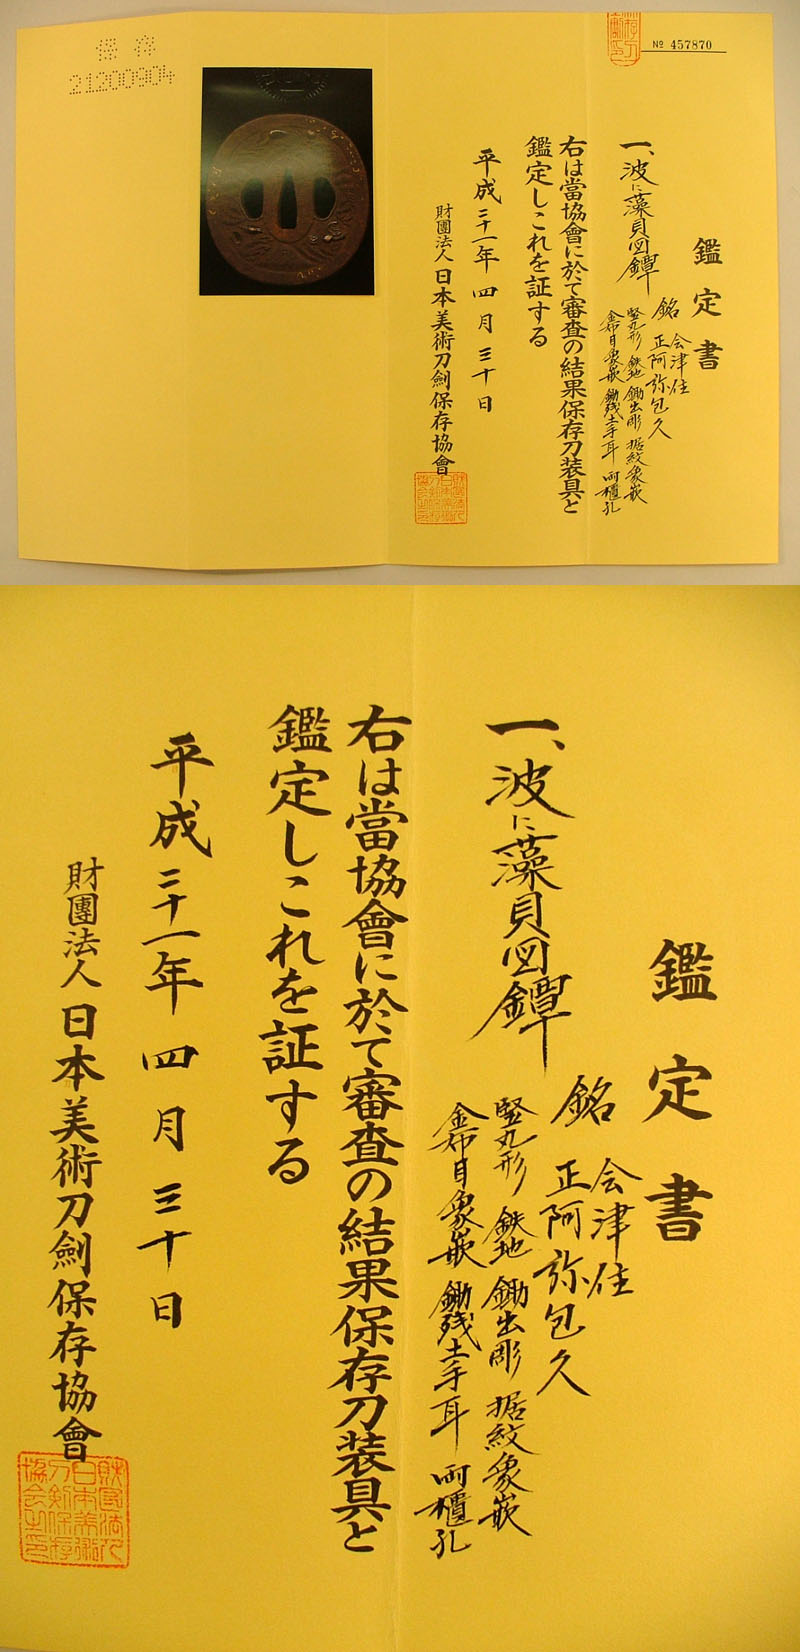 保存
21200904
No 457870
鑑定書
一、波に藻貝図鐔
銘 会津住
正阿弥包久
竪丸形 鉄地 鋤出彫 据紋象嵌
金布目象嵌 鋤残土手耳 両櫃孔
右は當協會に於て審査の結果保存刀装具と
鑑定しこれを証する
平成二十一年 四月 三十日
財團法人 日本美術刀劍保存協會
鑑定書
一、波に藻貝図鐔
銘 会津住
正阿弥包久
竪丸形 鉄地 鋤出彫 据紋象嵌
金布目象嵌 鋤残土手耳 両櫃孔
右は當協會に於て審査の結果保存刀装具と
鑑定しこれを証する
平成二十一年 四月 三十日
財團法人 日本美術刀劍保存協會